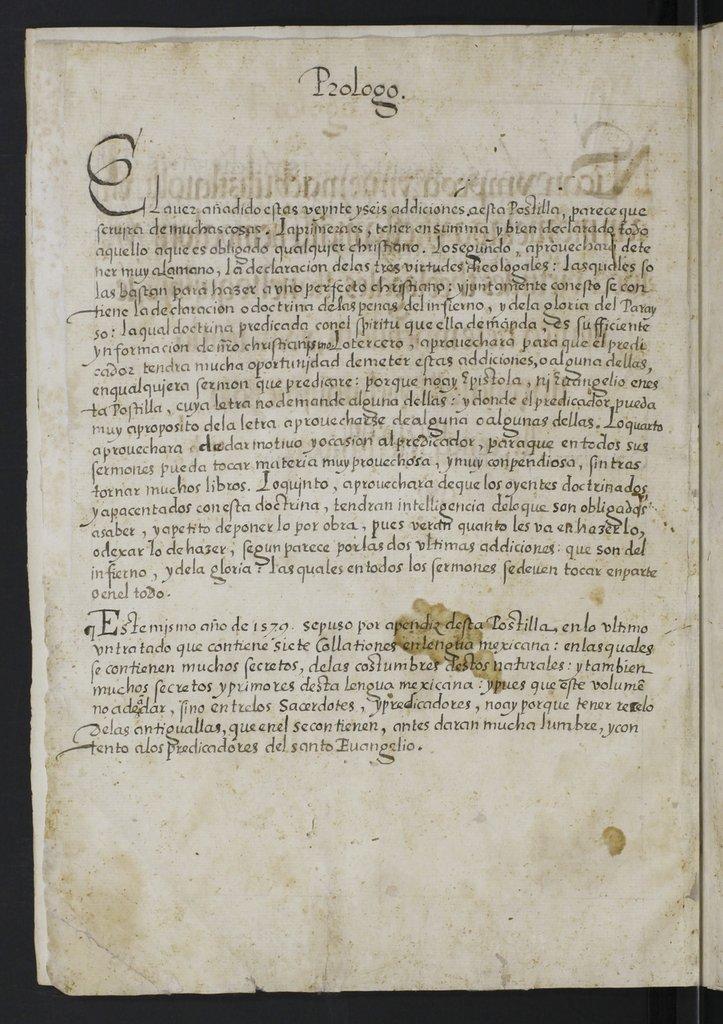 Prologo.
El auer añadido estas veynte y seis addiciones a esta Postilla, parece que
seruira de muchas cosas. La primera es, tener en summa y bien declarado todo
aquello a que es obligado qualquier christiano. Lo segundo, aprouechara de te
ner muy a la mano, la declaracion de las tres virtudes theologales: las quales so
las bastan para hazer a vno perfecto christiano: y juntamente con esto se con
tiene la declaracion o doctrina de las penas del infierno, y de la gloria del Paray
so: la qual doctrina predicada con el spiritu que ella demanda, es sufficiente
ynformacion de nr̃o christianismo. Lo tercero, aprouechara para que el predi
cador tendra mucha oportunidad de meter estas addiciones, o alguna dellas,
en qualquiera sermon que predicare: porque no ay Epistola, ni Euangelio en es
ta Postilla, cuya letra no demande alguna dellas: y donde el predicador pueda
muy a proposito de la letra aprouecharse de alguna o algunas dellas. Lo quarto
aprouechara de dar motiuo y ocasion al predicador, para que en todos sus
sermones pueda tocar materia muy prouechosa, y muy conpendiosa, sin tras
tornar muchos libros. Lo quinto, aprouechara de que los oyentes doctrinados,
y apacentados con esta doctrina, tendran intelligencia de lo que son obligados
a saber, y apetito de poner lo por obra, pues veran quanto les va en hazerlo,
o dexar lo de hazer, segun parece por las dos vltimas addiciones: que son del
infierno, y de la gloria: las quales en todos los sermones se deuen tocar en parte
o en el todo.
¶ Este mismo año de 1579. se puso por apendiz desta Postilla, en lo vltimo
vn tratado que contiene siete Collationes en lengua mexicana: en las quales
se contienen muchos secretos, de las costumbres destos naturales: y tambien
muchos secretos y primores desta lengua mexicana: y pues que este volumẽ
no a de andar, sino entre los Sacerdotes, y predicadores, no ay porque tener recelo
de las antiguallas, que en el se contienen, antes daran mucha lumbre, y con
tento a los predicadores del santo Euangelio.